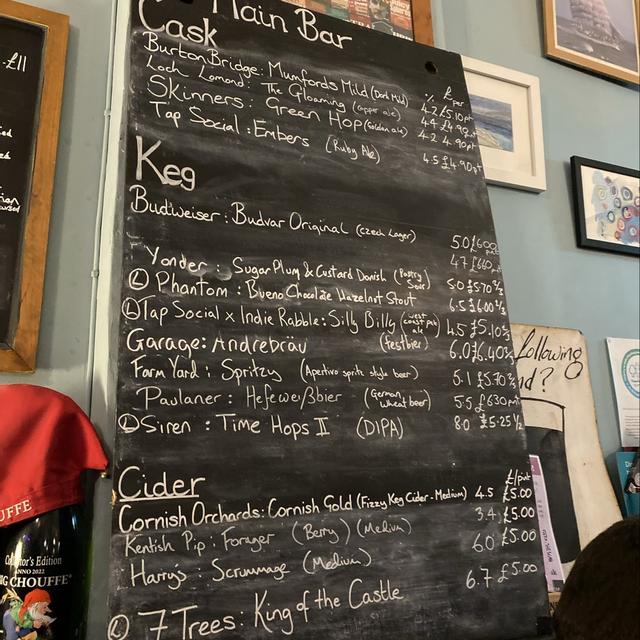 Main Bar
Cask
% £ per
Burton Bridge: Mumfords Mild (Dark Mild) 4.2 £5.10pt
Loch Lomond: The Gloaming (Copper ale) 4.4 £4.90pt
Skinners: Green Hop (Golden ale) 4.2 4.90pt
Tap Social: Embers (Ruby Ale) 4.5 £4.90pt
Keg
Budweiser: Budvar Original (Czech Lager) 5.0 £6.00
Yonder: Sugar Plum & Custard Danish (Pastry Sour) 4.7
Ⓛ Phantom: Bueno Chocolate Hazelnut Stout 5.0 £5.70½
Ⓛ Tap Social x Indie Rabble: Silly Billy (west coast pale ale) 6.5 £6.00½
Garage: Andrebräu (festbier) 4.5 £5.10½
Farm Yard: Spritzy (Aperitivo spritz style beer) 6.0 £6.40½
Paulaner: Hefeweißbier (German wheat beer) 5.1 £5.70½
Ⓛ Siren: Time Hops II (DIPA) 5.5 £6.30
8.0 £5.25½
Cider
£/pint
Cornish Orchards: Cornish Gold (Fizzy Keg Cider - Medium) 4.5 £5.00
Kentish Pip: Forager (Berry) (Medium) 3.4 £5.00
Harry's: Scrummage (Medium) 6.0 £5.00
Ⓛ 7 Trees: King of the Castle 6.7 £5.00
£11
following
d?
UFFE
Collector's Edition
ANNO 2022
G CHOUFFE